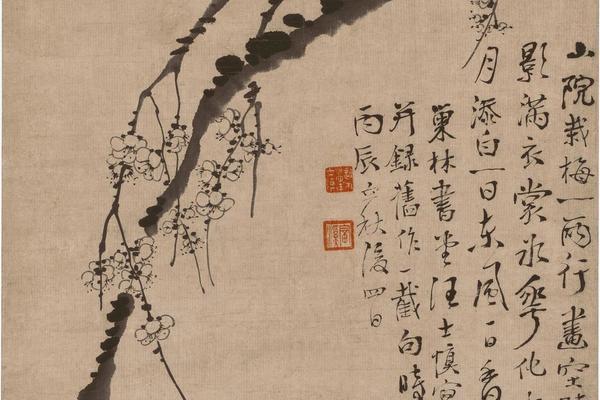 山院栽梅一兩行畫空
影滿衣裳冰花化
月添白一日東風一日香
巢林書堂汪士慎寫
并錄舊作一截句時
丙辰立秋後四日